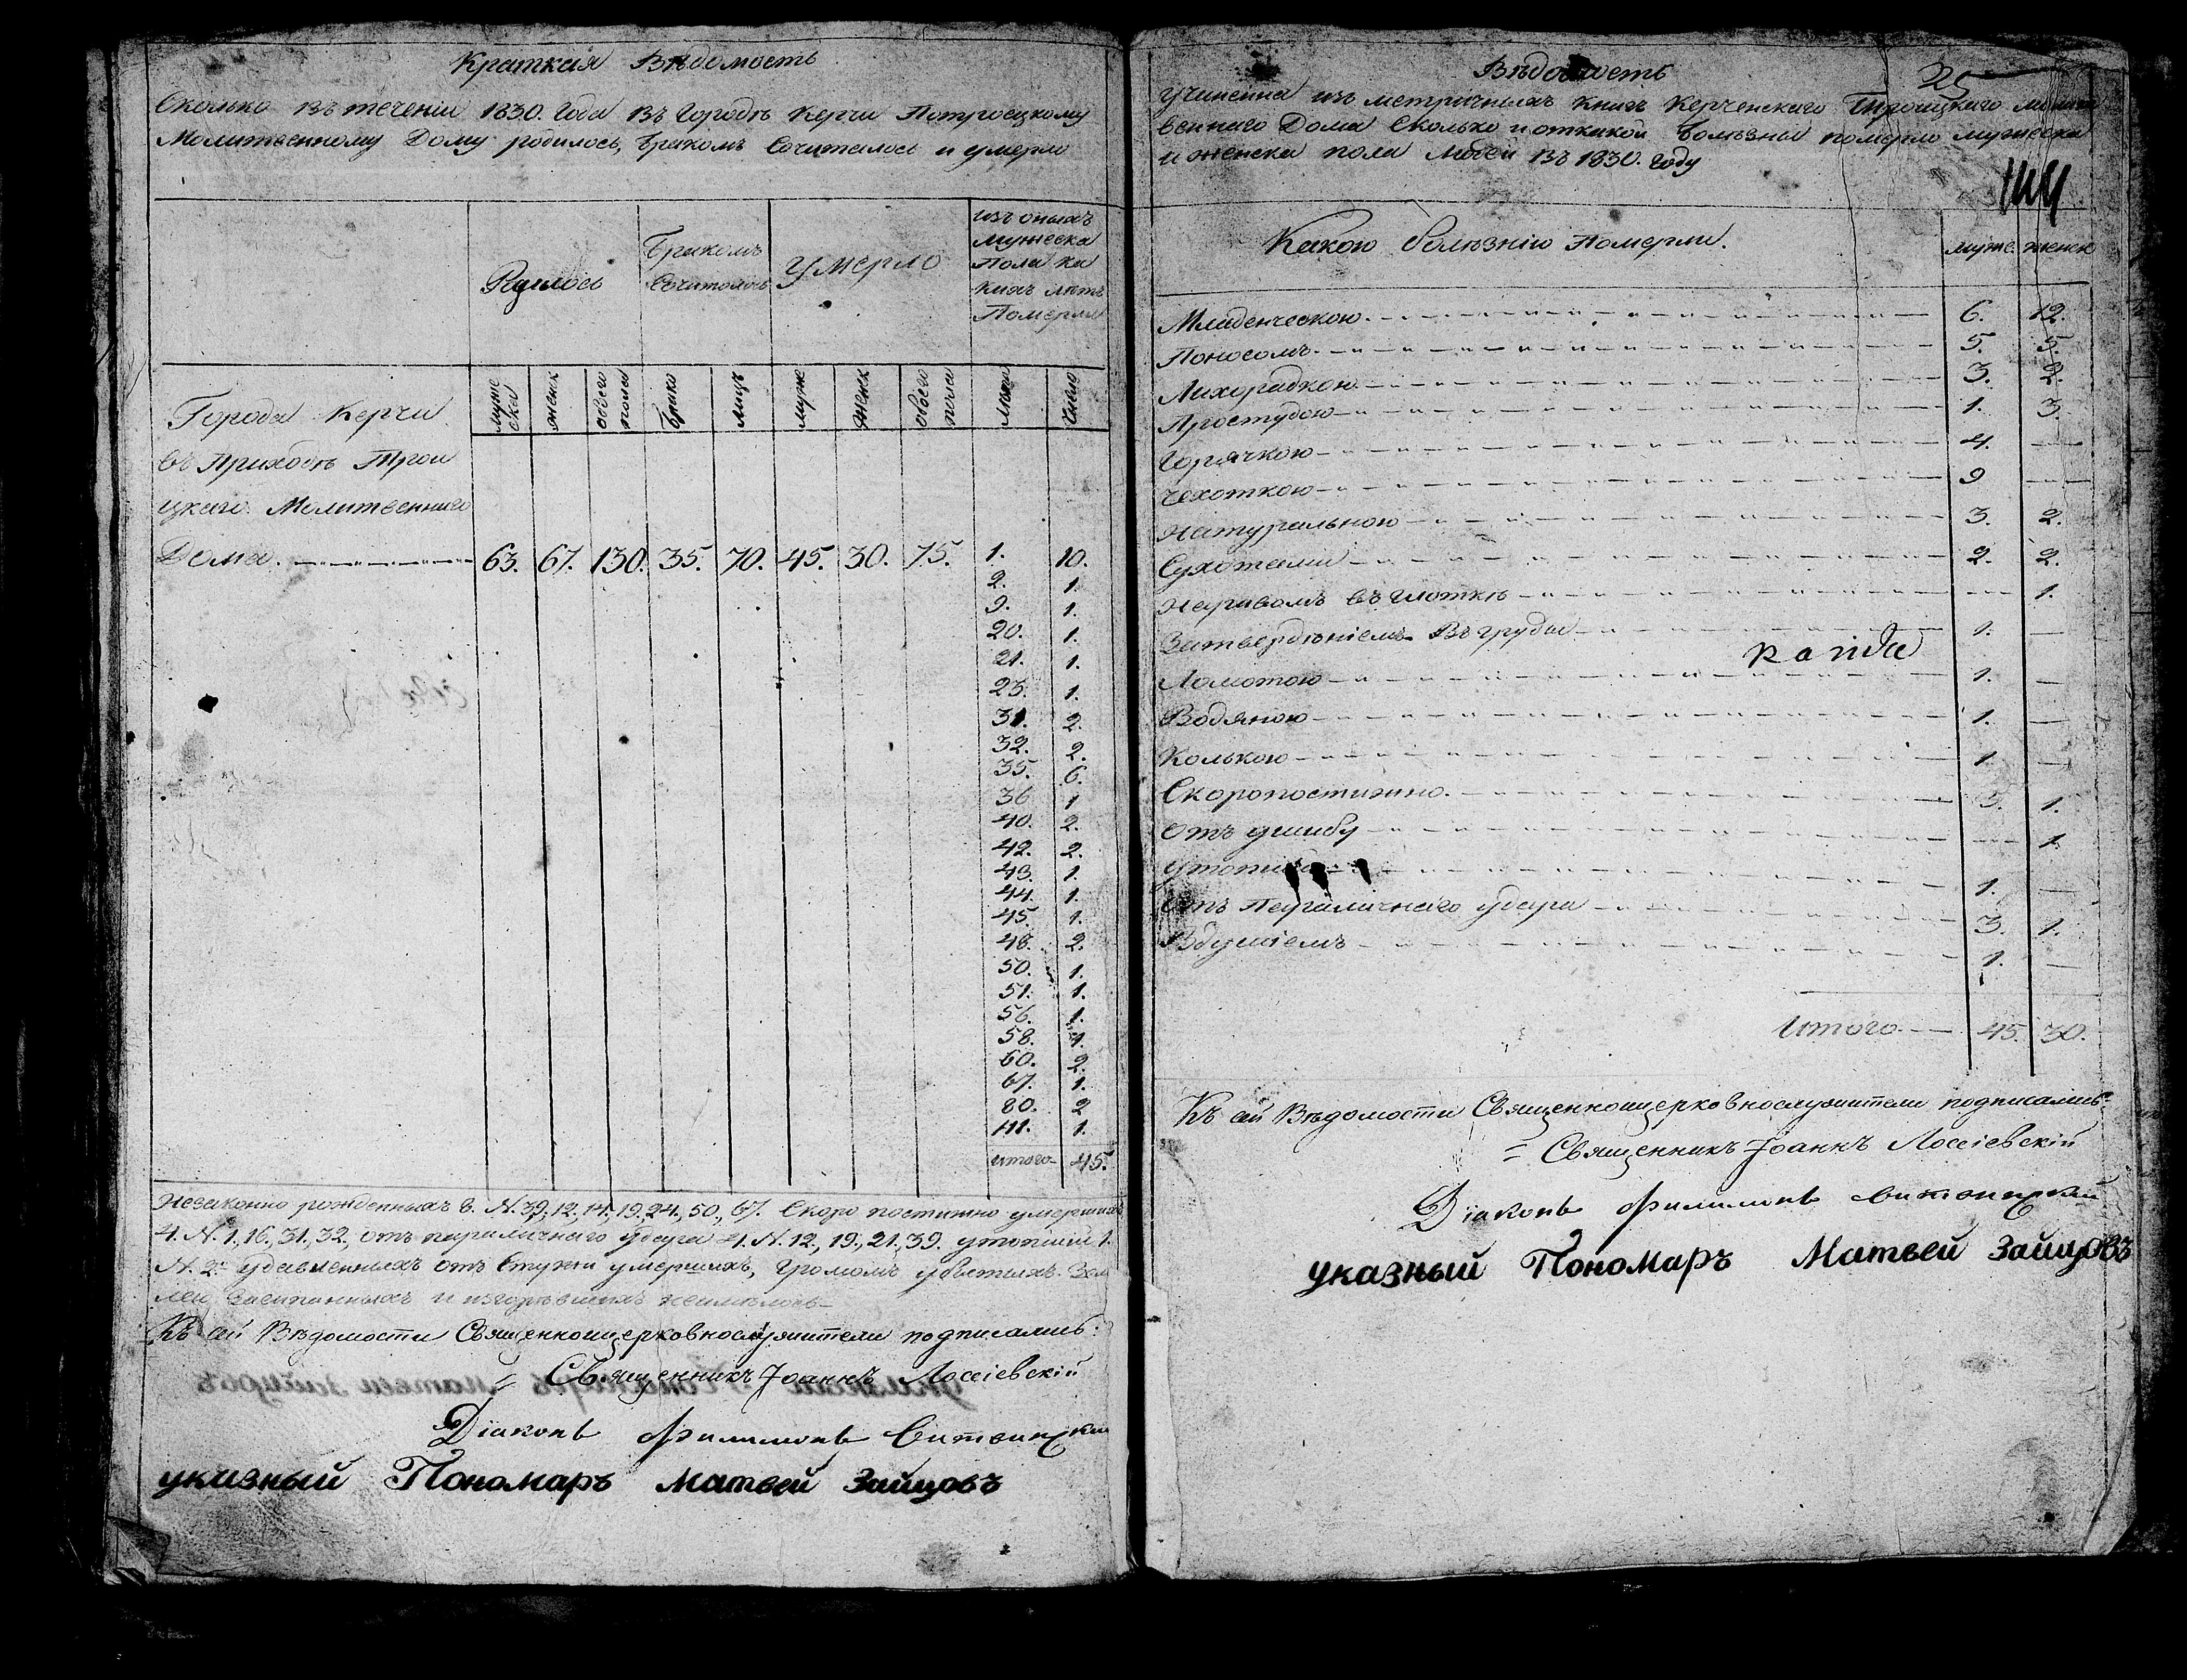 Краткая Вѣдомость
Сколько въ теченіи 1830. Года въ Городѣ Керчи Потроецкому
Молитвенному Дому родилось, бракомъ Сочиталось и умерло
Родилось
Бракомъ Сочиталось
Умерло
изъ оныхъ
Мужеска
Пола ка
кихъ лѣтъ
Померли
муже ска
женск
обоего пола
брако
лицъ
муже
женск
обоего пола
лѣта
Число
Города Керчи
въ Приходѣ Трои
цкаго Молитвеннаго
Дома. 63. 67. 130. 35. 70. 45. 30. 75. 1. 10.
2. 1.
9. 1.
20. 1.
21. 1.
23. 1.
31. 2.
32. 2.
35. 6.
36 1
40. 2.
42. 2.
43. 1.
44. 1.
45. 1.
48. 2.
50. 1.
51. 1.
56. 1.
58. 1.
60. 2.
67. 1.
80. 2
111. 1.
итого 45.
Незаконно рожденныхъ 8. N. 39, 12, 14, 19, 24, 50, 67. Скоро постижно умершихъ
4. N. 1, 16, 31, 32, отъ параличнаго удара 4. N. 12, 19, 21, 39. утопшій 1.
N. 2. удавленныхъ отъ Стужи умершихъ, громомъ убитыхъ. Зем
лею Засипанныхъ и изгорѣвшихъ неимѣлось
Къ сей Вѣдомости Священноицерковнослужители подписались:
= Священникъ Іоаннъ Лоссіевскій
Діаконъ Филимонъ
указный Пономаръ Матвей Зайцовъ
25
Вѣдомость
Учинена изъ метричныхъ книгъ Керченскаго Троицкаго молит
веннаго Дома Сколько и откакой болѣзны померло мужеска
и женска пола людей въ 1830. году
Какою болѣзнію Померли. муже. женск
Младенческою. 6. 12.
Поносомъ. 5. 5.
Лихорадкою 3. 2.
Простудою 1. 3.
Горячкою 4. —
Чехоткою 9 —
Натуральною 3. 2.
Сухотами 2. 2.
Наривомъ въ глоткѣ — 1.
Затвердѣніемъ Въ груды 1. —
Ломотою 1. —
Водяною 1. —
Колькою 1 —
Скоропостижно. 3. 1.
Отъ ушибу — 1.
1. —
Отъ Параличнаго удара 3. 1.
Вдушіемъ 1. —
Итого 45. 30.
Къ сей Вѣдомости Священноицерковнослужители подписались
= Священникъ Іоаннъ Лоссіевскій
Діаконъ Филимонъ
указный Пономаръ Матвей Зайцовъ